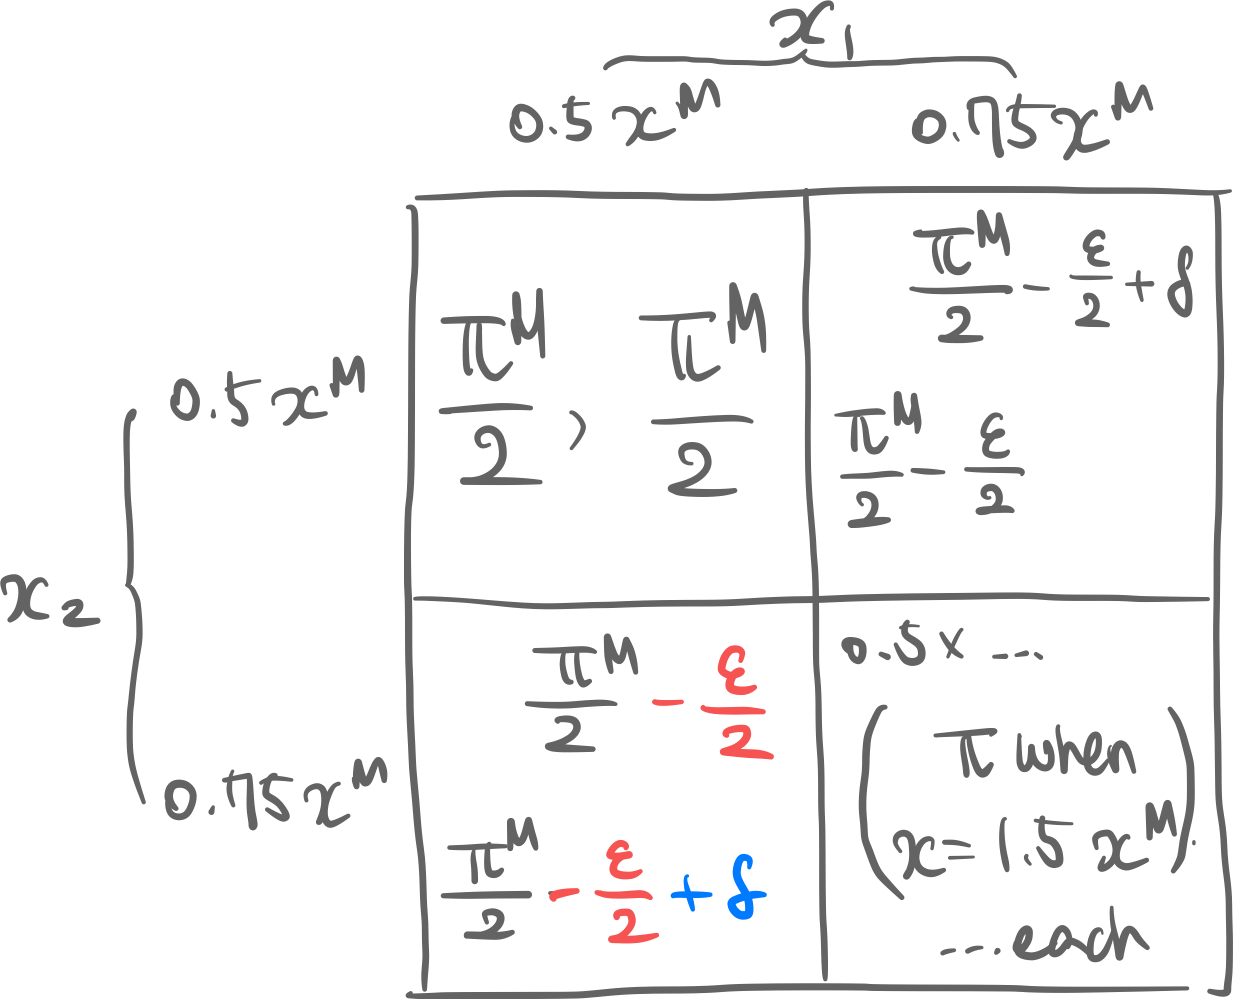 x₁
0.5 xᴹ 0.75 xᴹ
x₂
0.5 xᴹ
πᴹ/2 , πᴹ/2
πᴹ/2 - ε/2 + δ
πᴹ/2 - ε/2
0.75 xᴹ
πᴹ/2 - ε/2
πᴹ/2 - ε/2 + δ
0.5 × ...
(π when
x = 1.5 xᴹ).
... each